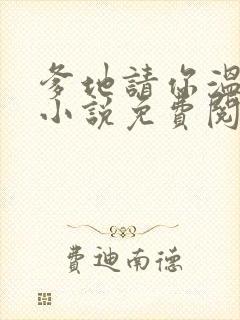 爹地請你溫
小說免費閱
費迪南德